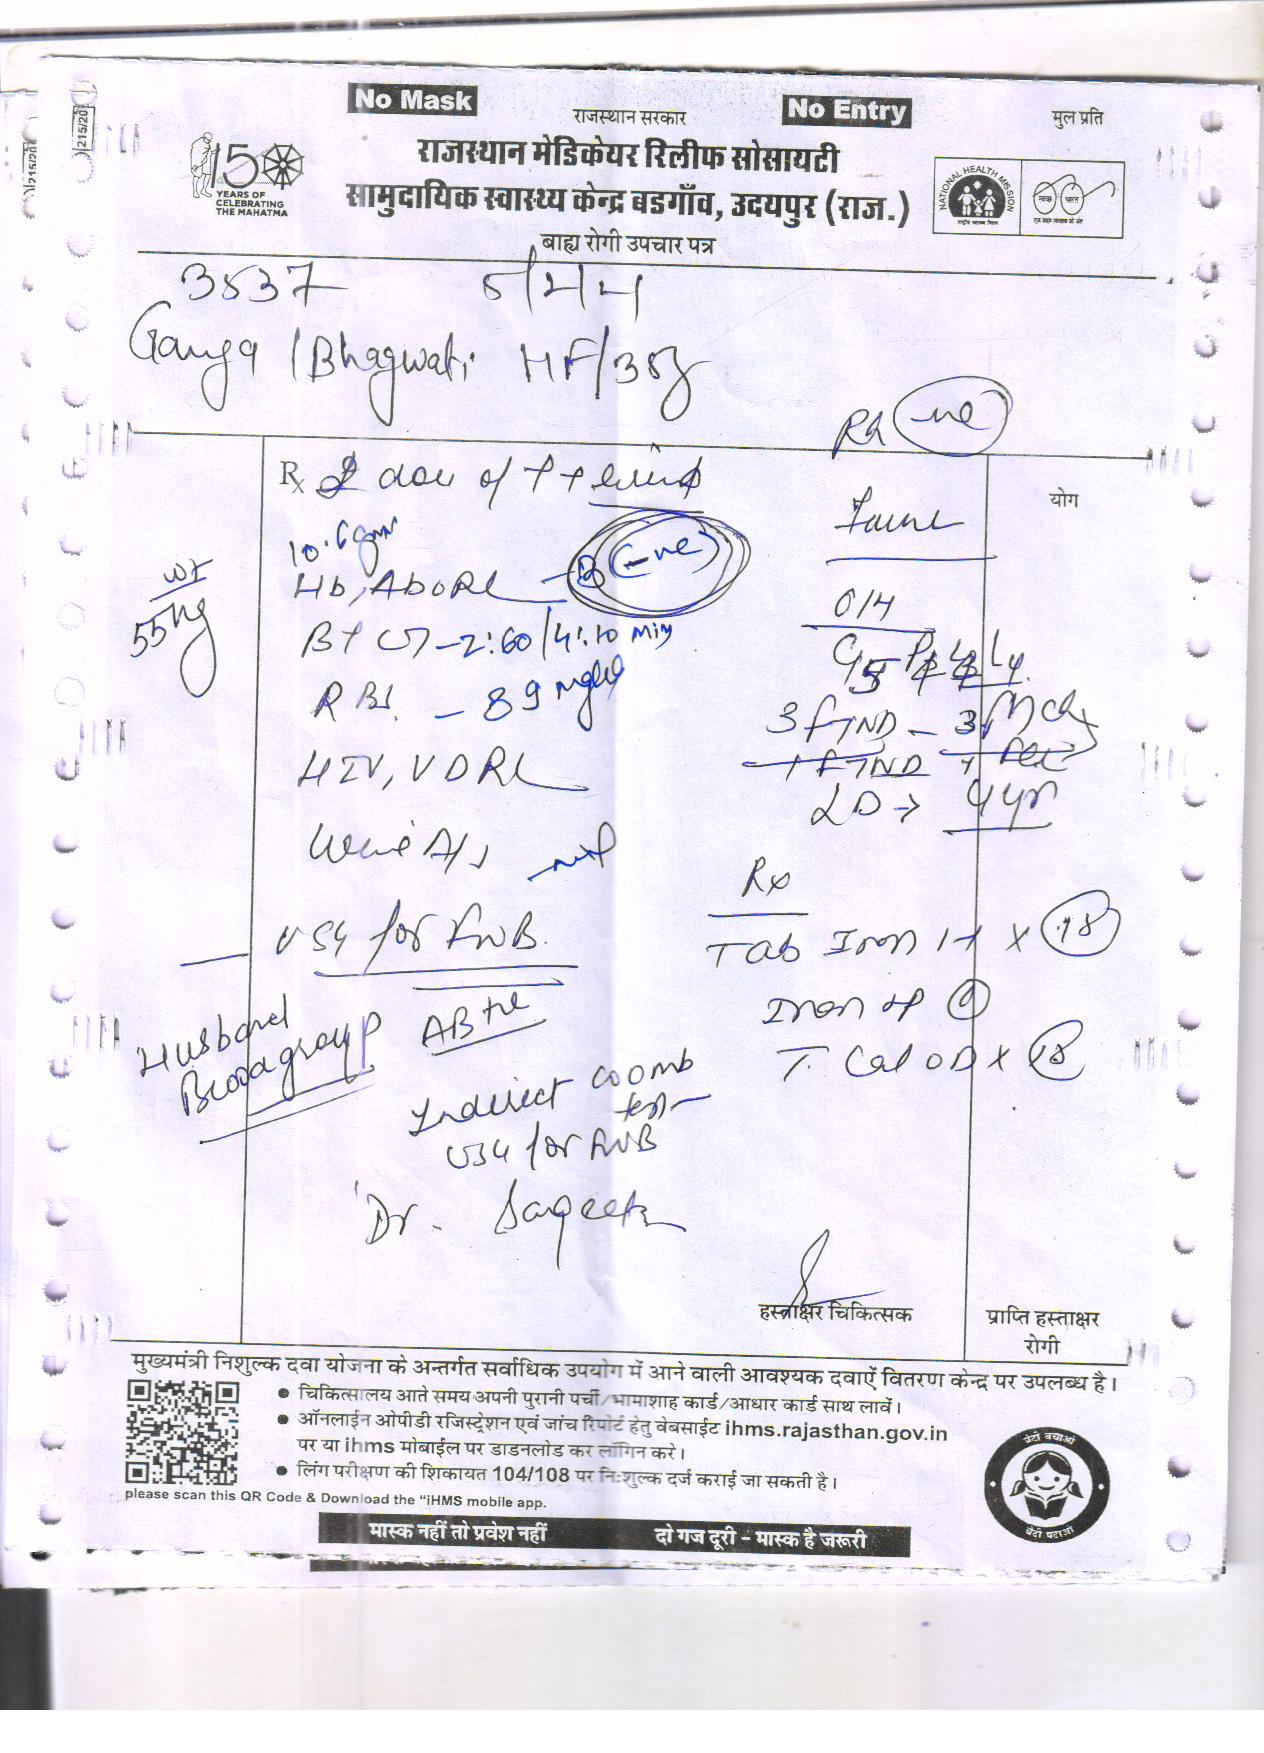 No Mask
राजस्थान सरकार
No Entry
मुल प्रति
215/20
15
YEARS OF
CELEBRATING
THE MAHATMA
राजस्थान मेडिकेयर रिलीफ सोसायटी
सामुदायिक स्वास्थ्य केन्द्र बडगाँव, उदयपुर (राज.)
NATIONAL HEALTH MISSION
स्वच्छ भारत
बाह्य रोगी उपचार पत्र
3537
Ganga / Bhagwati HF/35y
Rh -ve
Rx
योग
10.6 gm
Hb, ABORh - B -ve
wt
55 kg
BT CT - 2:60 / 4:10 Min
O/H
RBS. - 89 mg/dl
3 FTND - 3
HIV, VDRL
1 FTND
LD → 4 yr
Urine A/s
Rx
USG for FWB.
Tab Iron 1+ x 18
Husband
Bloodgroup AB +ve
T. Cal OD x 18
Indirect coomb
test
USG for FWB
Dr. Sangeeta
हस्ताक्षर चिकित्सक
प्राप्ति हस्ताक्षर
रोगी
मुख्यमंत्री निशुल्क दवा योजना के अन्तर्गत सर्वाधिक उपयोग में आने वाली आवश्यक दवाऐं वितरण केन्द्र पर उपलब्ध है।
● चिकित्सालय आते समय अपनी पुरानी पर्ची/भामाशाह कार्ड/आधार कार्ड साथ लावें।
● ऑनलाईन ओपीडी रजिस्ट्रेशन एवं जांच रिपोर्ट हेतु वेबसाईट ihms.rajasthan.gov.in
पर या ihms मोबाईल पर डाडनलोड कर लॉगिन करे।
● लिंग परीक्षण की शिकायत 104/108 पर निःशुल्क दर्ज कराई जा सकती है।
please scan this QR Code & Download the "iHMS mobile app.
बेटी बचाओ
बेटी पढाओ
मास्क नहीं तो प्रवेश नहीं
दो गज दूरी - मास्क है जरूरी